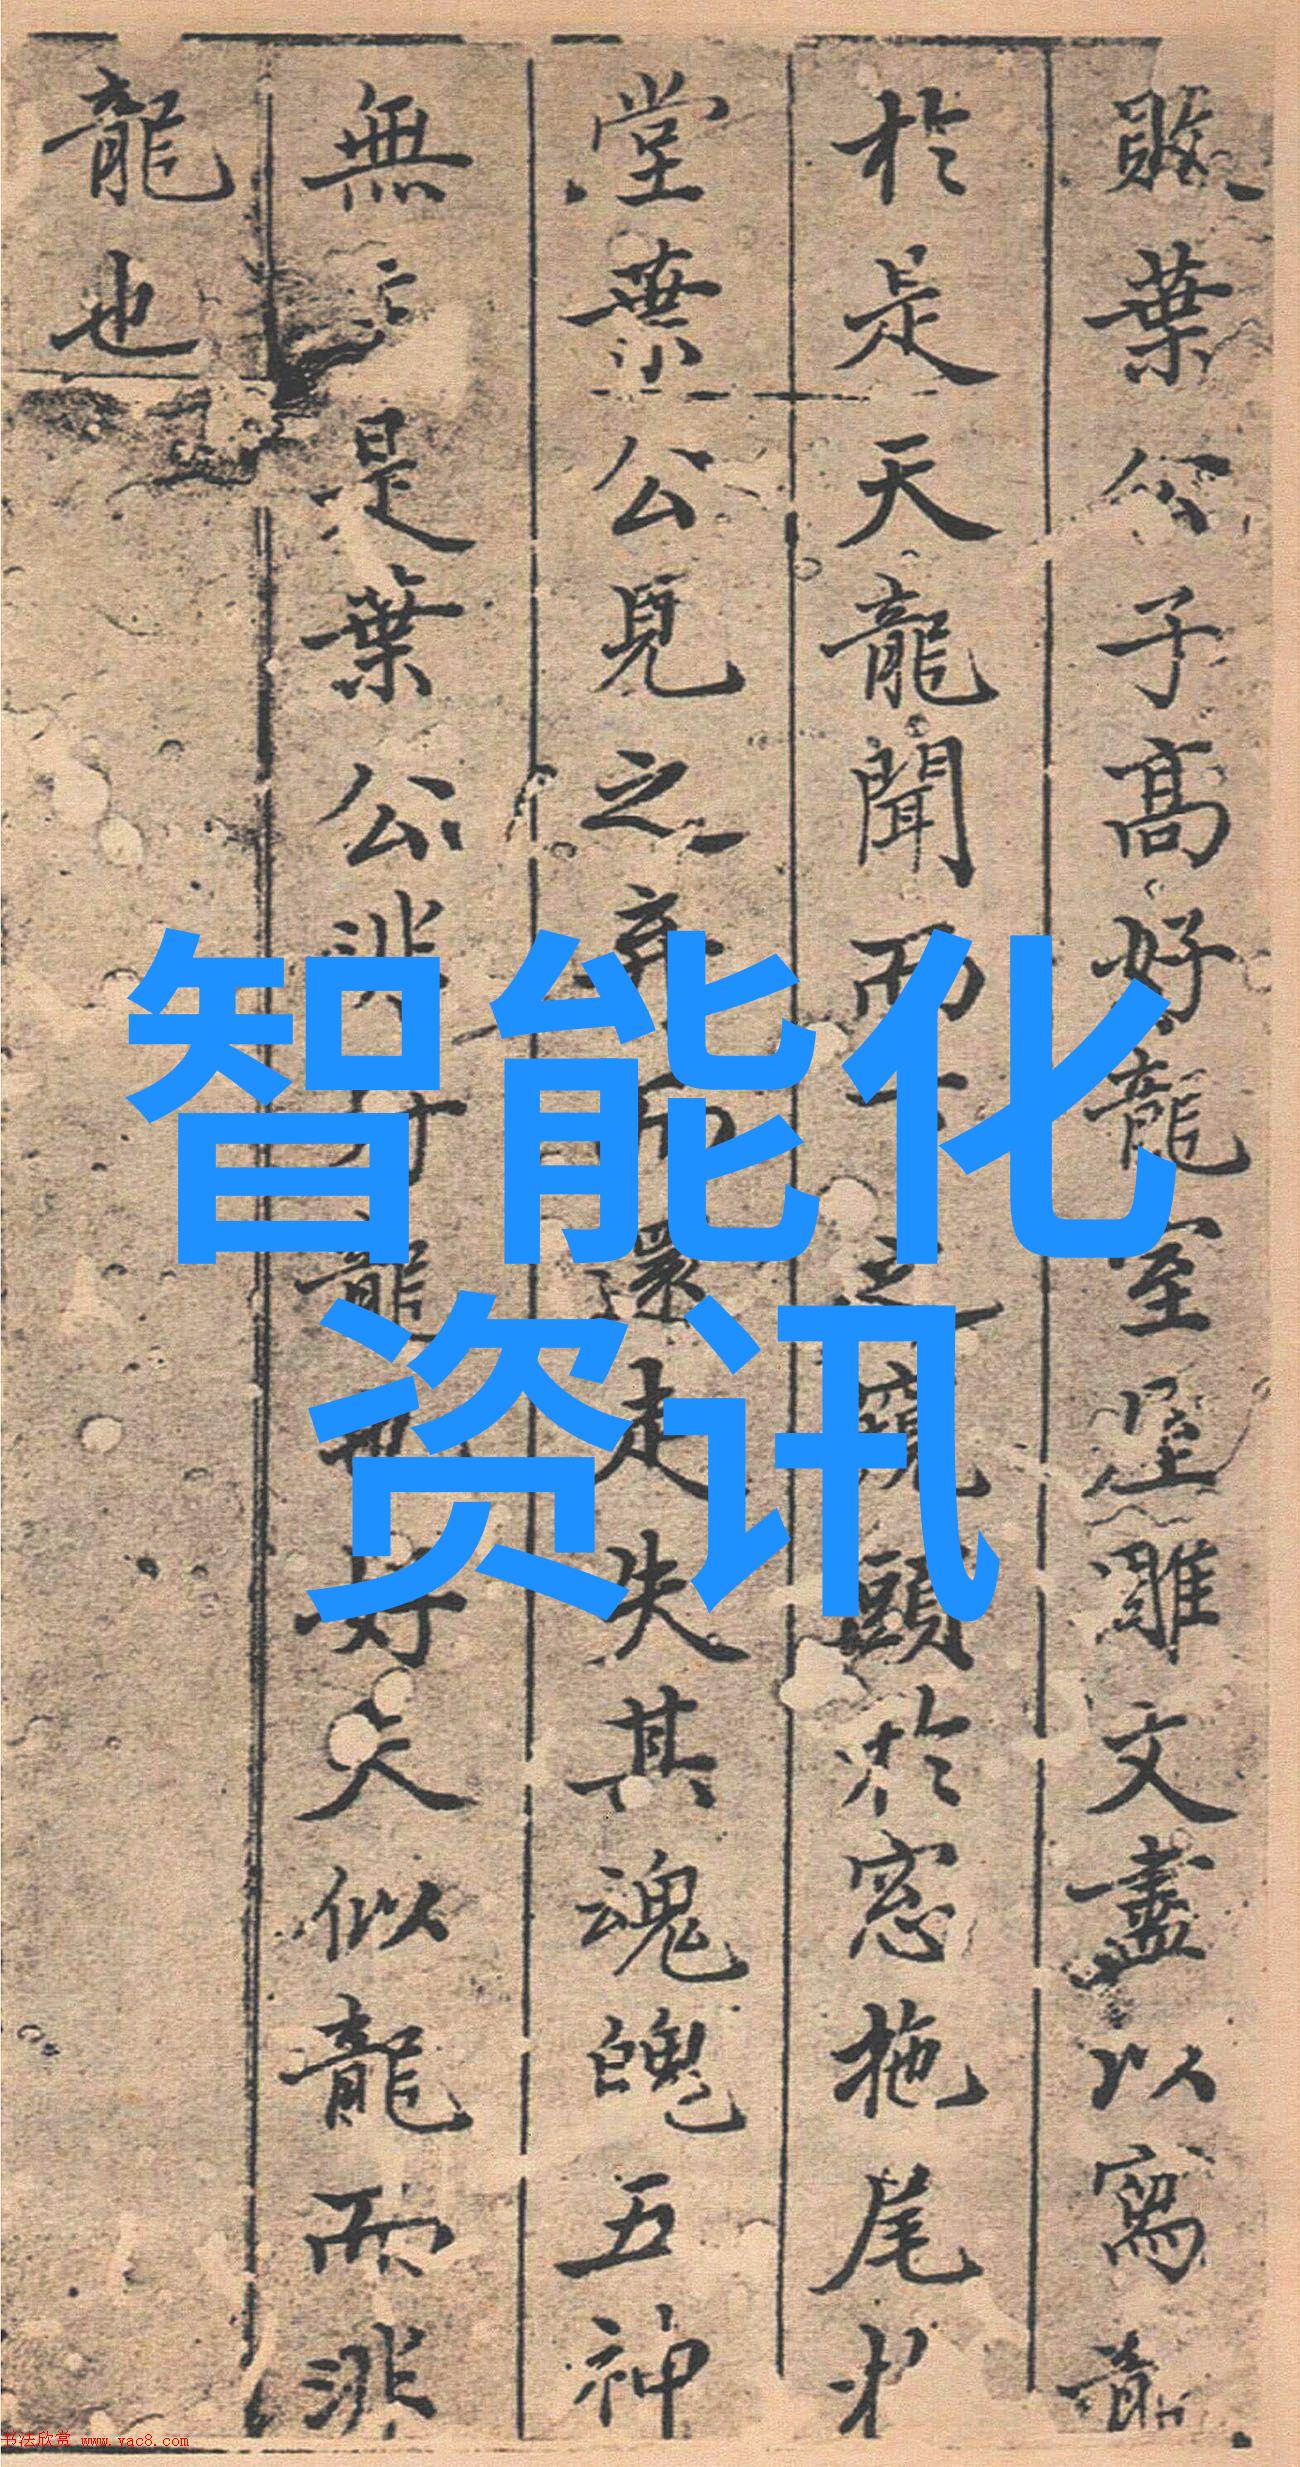 敗葉公子高好龍室屋雕文盡以寫龍
於是天龍聞而下之窺頭於窓拖尾於
堂葉公見之棄而還走失其魂魄五神
無主是葉公非好龍也好夫似龍而非
龍也
智能化
资讯
书法欣赏 www.yac8.com